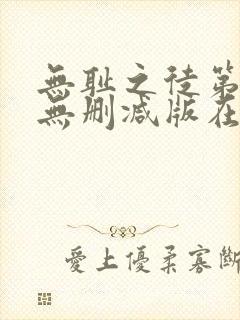 無耻之徒第
無删减版在
愛上優柔寡斷